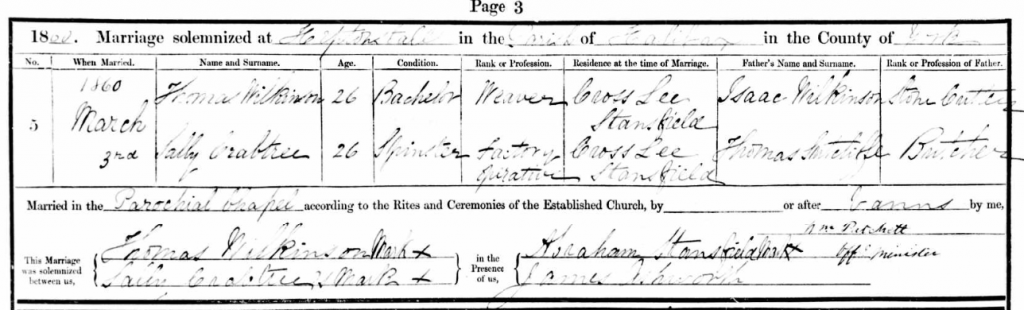 Page 3
1860. Marriage solemnized at Heptonstall in the Parish of Halifax in the County of York
No. When Married. Name and Surname. Age. Condition. Rank or Profession. Residence at the time of Marriage. Father's Name and Surname. Rank or Profession of Father.
1860
Thomas Wilkinson 26 Bachelor Weaver Cross Lee Isaac Wilkinson Stone Cutter
5 March Stansfield
3rd Sally Crabtree 26 Spinster Factory Cross Lee Thomas Sutcliffe Butcher
Operative Stansfield
Married in the Parochial Chapel according to the Rites and Ceremonies of the Established Church, by or after Banns by me,
Off Minister
This Marriage was solemnized between us, Thomas Wilkinson Mark X in the Presence of us, Abraham Stansfield Mark X
Sally Crabtree's Mark X James